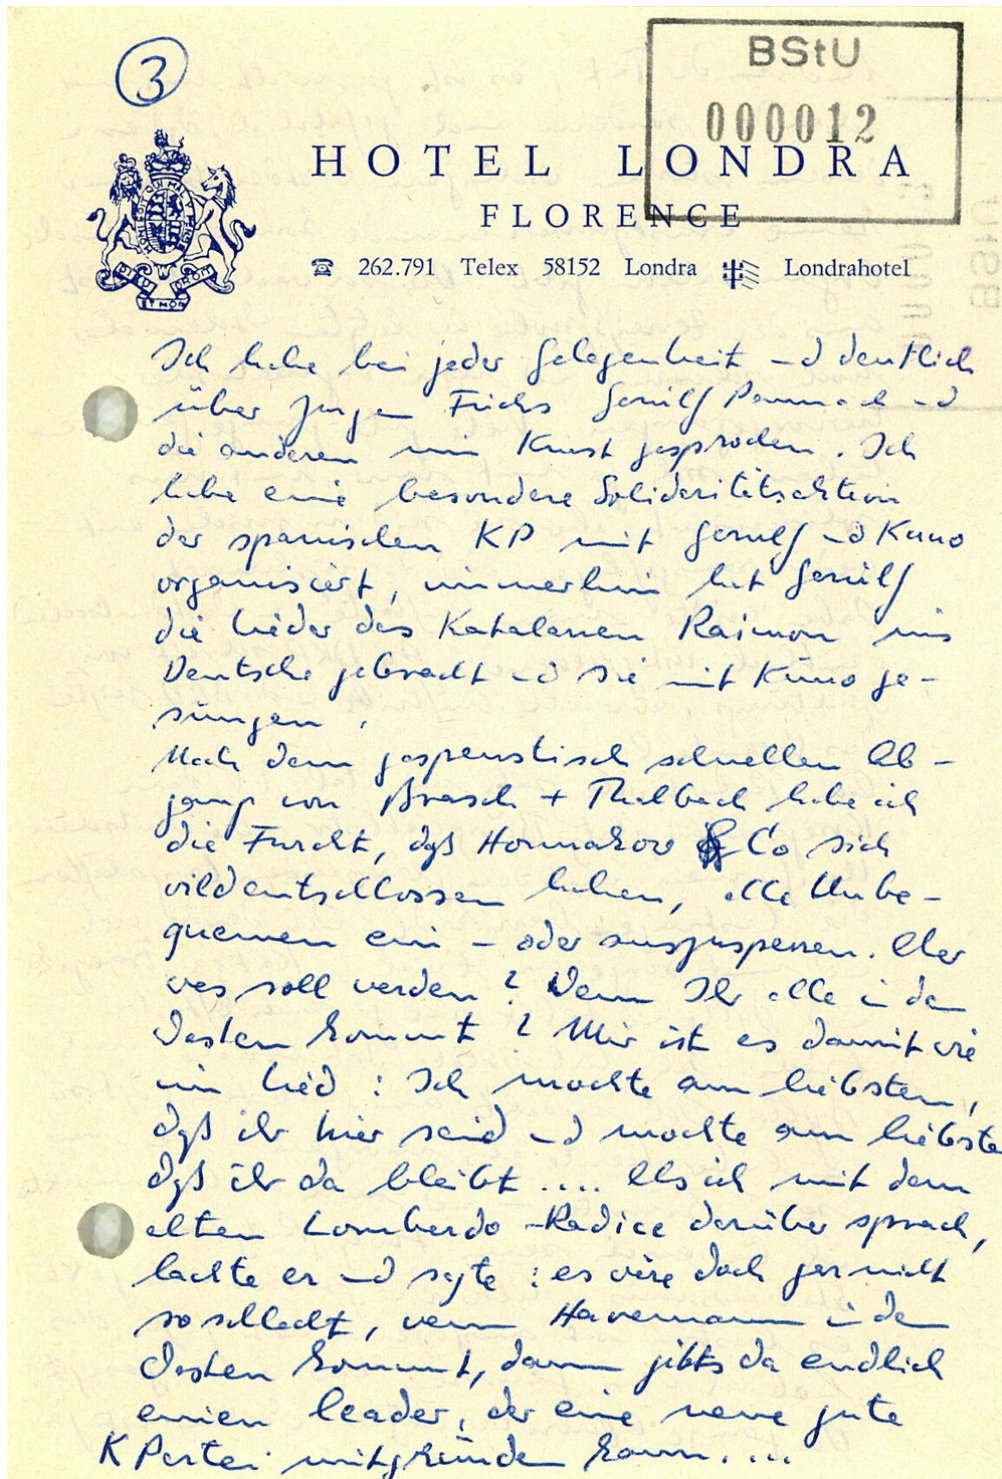 3
BStU
000012
HOTEL LONDRA
FLORENCE
262.791 Telex 58152 Londra Londrahotel
Ich habe bei jeder Gelegenheit und deutlich
über Jürgen Fuchs Gerulf Pannach und
die anderen im Knast gesprochen. Ich
habe eine besondere Solidaritätsaktion
der spanischen KP mit Gerulf und Kuno
organisiert, immerhin hat Gerulf
die Lieder des Katalanen Raimon ins
Deutsche gebracht und sie mit Kuno ge-
sungen.
Nach dem gespenstisch schnellen Ab-
gang von Brasch + Thalbach habe ich
die Furcht, daß & Co sich
wildentschlossen haben, alle Unbe-
quemen ein- oder auszusperren. Aber
was soll werden? Wenn Ihr alle in den
Westen kommt? Mir ist es damit wie
im Lied: Ich mochte am liebsten,
daß ihr hier seid und mochte am liebsten
daß ihr da bleibt .... Als ich mit dem
alten Lombardo-Radice darüber sprach,
lachte er und sagte: es wäre doch gar nicht
so schlecht, wenn Havemann in den
Westen kommt, dann gibts da endlich
einen leader, der eine neue gute
K Partei mitgründen kann....